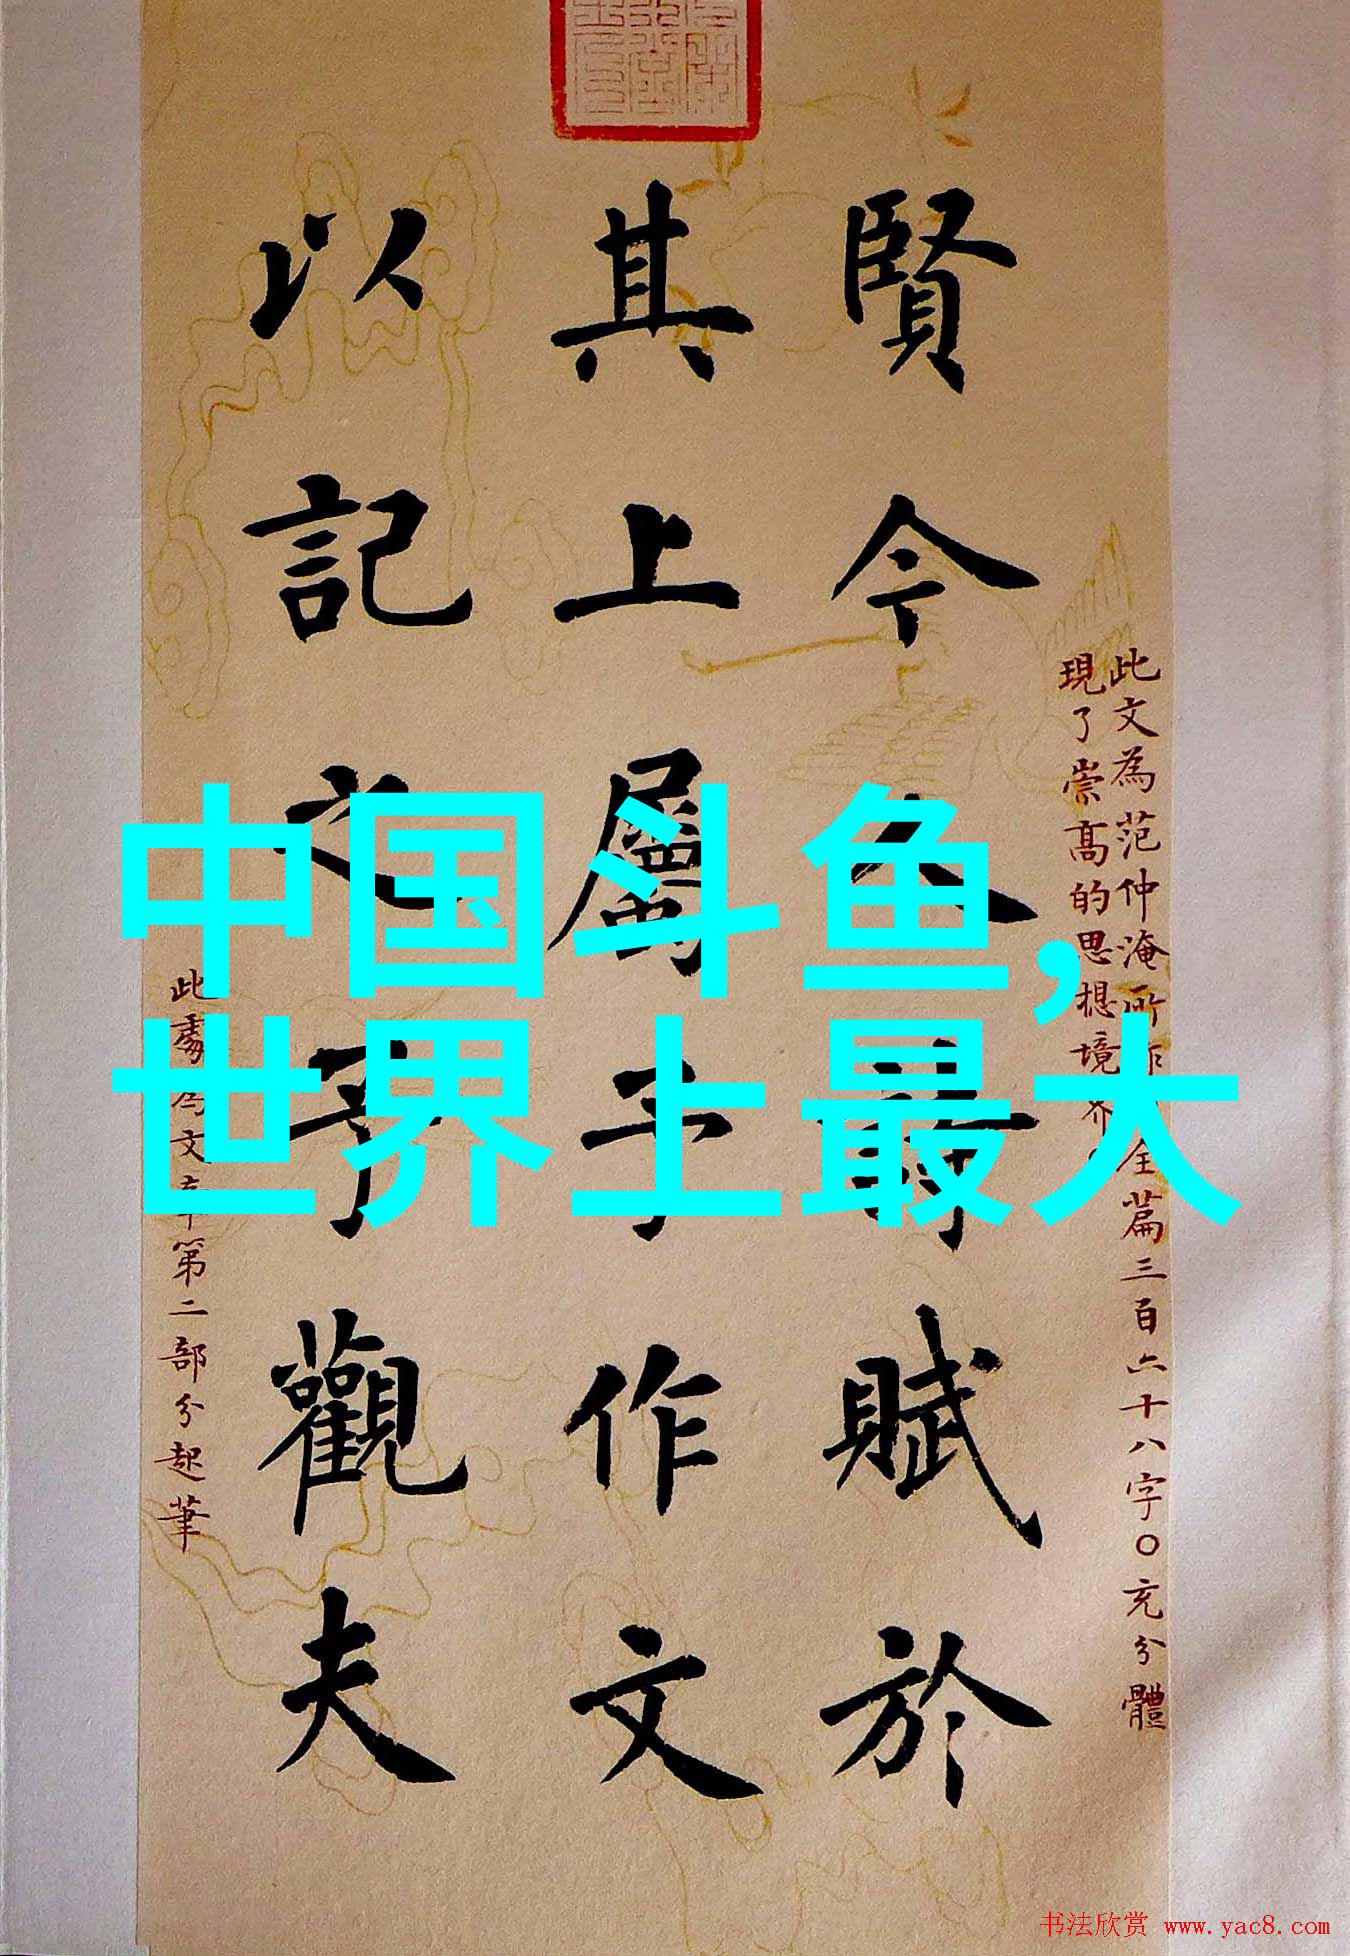 此文為范仲淹所作全篇三百六十八字〇充分體
現了崇高的思想境界
賢今人詩賦於
其上屬予作文
以記之予觀夫
此處為文章第二部分起筆
中国斗鱼,
世界上最大
书法欣赏 www.yac8.com